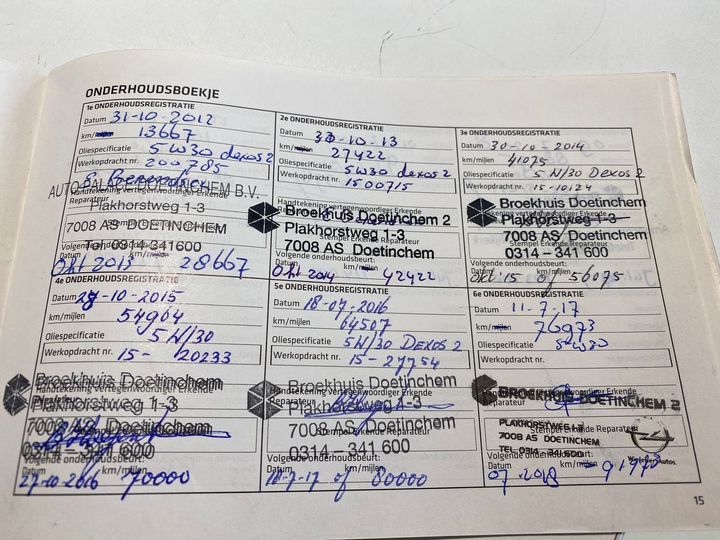 ONDERHOUDSBOEKJE
1e ONDERHOUDSREGISTRATIE
Datum 31-10-2012
km/mijlen 13667
Oliespecificatie 5W30 dexos 2
Werkopdracht nr. 200785
Handtekening vertegenwoordiger Erkende Reparateur
AUTO PALACE DOETINCHEM B.V.
Plakhorstweg 1-3
7008 AS DOETINCHEM
Tel. 0314-341600
Volgende onderhoudsbeurt:
Datum km/mijlen
Okt 2013 28667
2e ONDERHOUDSREGISTRATIE
Datum 30-10-13
km/mijlen 27422
Oliespecificatie 5W30 dexos 2
Werkopdracht nr. 1500715
Handtekening vertegenwoordiger Erkende
Broekhuis Doetinchem 2
Plakhorstweg 1-3
Stempel Erkende Reparateur
7008 AS Doetinchem
Volgende onderhoudsbeurt:
Datum km/mijlen
Okt 2014 42422
3e ONDERHOUDSREGISTRATIE
Datum 30-10-2014
km/mijlen 41075
Oliespecificatie 5W/30 Dexos 2
Werkopdracht nr. 15-10124
Handtekening vertegenwoordiger Erkende
Broekhuis Doetinchem
Plakhorstweg 1-3
7008 AS Doetinchem
Stempel Erkende Reparateur
0314 - 341 600
Volgende onderhoudsbeurt:
Datum km/mijlen
okt '15 of 56075
4e ONDERHOUDSREGISTRATIE
Datum 28-10-2015
km/mijlen 54964
Oliespecificatie 5W/30
Werkopdracht nr. 15-20233
Handtekening vertegenwoordiger Erkende Reparateur
Broekhuis Doetinchem
Plakhorstweg 1-3
7008 AS Doetinchem
0314 - 341 600
Volgende onderhoudsbeurt:
Datum km/mijlen
27-10-2016 70000
5e ONDERHOUDSREGISTRATIE
Datum 18-07-2016
km/mijlen 64507
Oliespecificatie 5W/30 Dexos 2
Werkopdracht nr. 15-27754
Handtekening vertegenwoordiger Erkende Reparateur
Broekhuis Doetinchem
Plakhorstweg 1-3
7008 AS Doetinchem
Stempel Erkende Reparateur
0314 - 341 600
Volgende onderhoudsbeurt:
Datum km/mijlen
18-7-17 of 80000
6e ONDERHOUDSREGISTRATIE
Datum 11-7-17
km/mijlen 76973
Oliespecificatie 5W30
Werkopdracht nr.
Handtekening vertegenwoordiger Erkende Reparateur
BROEKHUIS DOETINCHEM 2
PLAKHORSTWEG 1-3
7008 AS DOETINCHEM
TEL. 0314 - 341 600
Stempel Erkende Reparateur
Volgende onderhoudsbeurt:
Datum km/mijlen
07 2018 91973
15